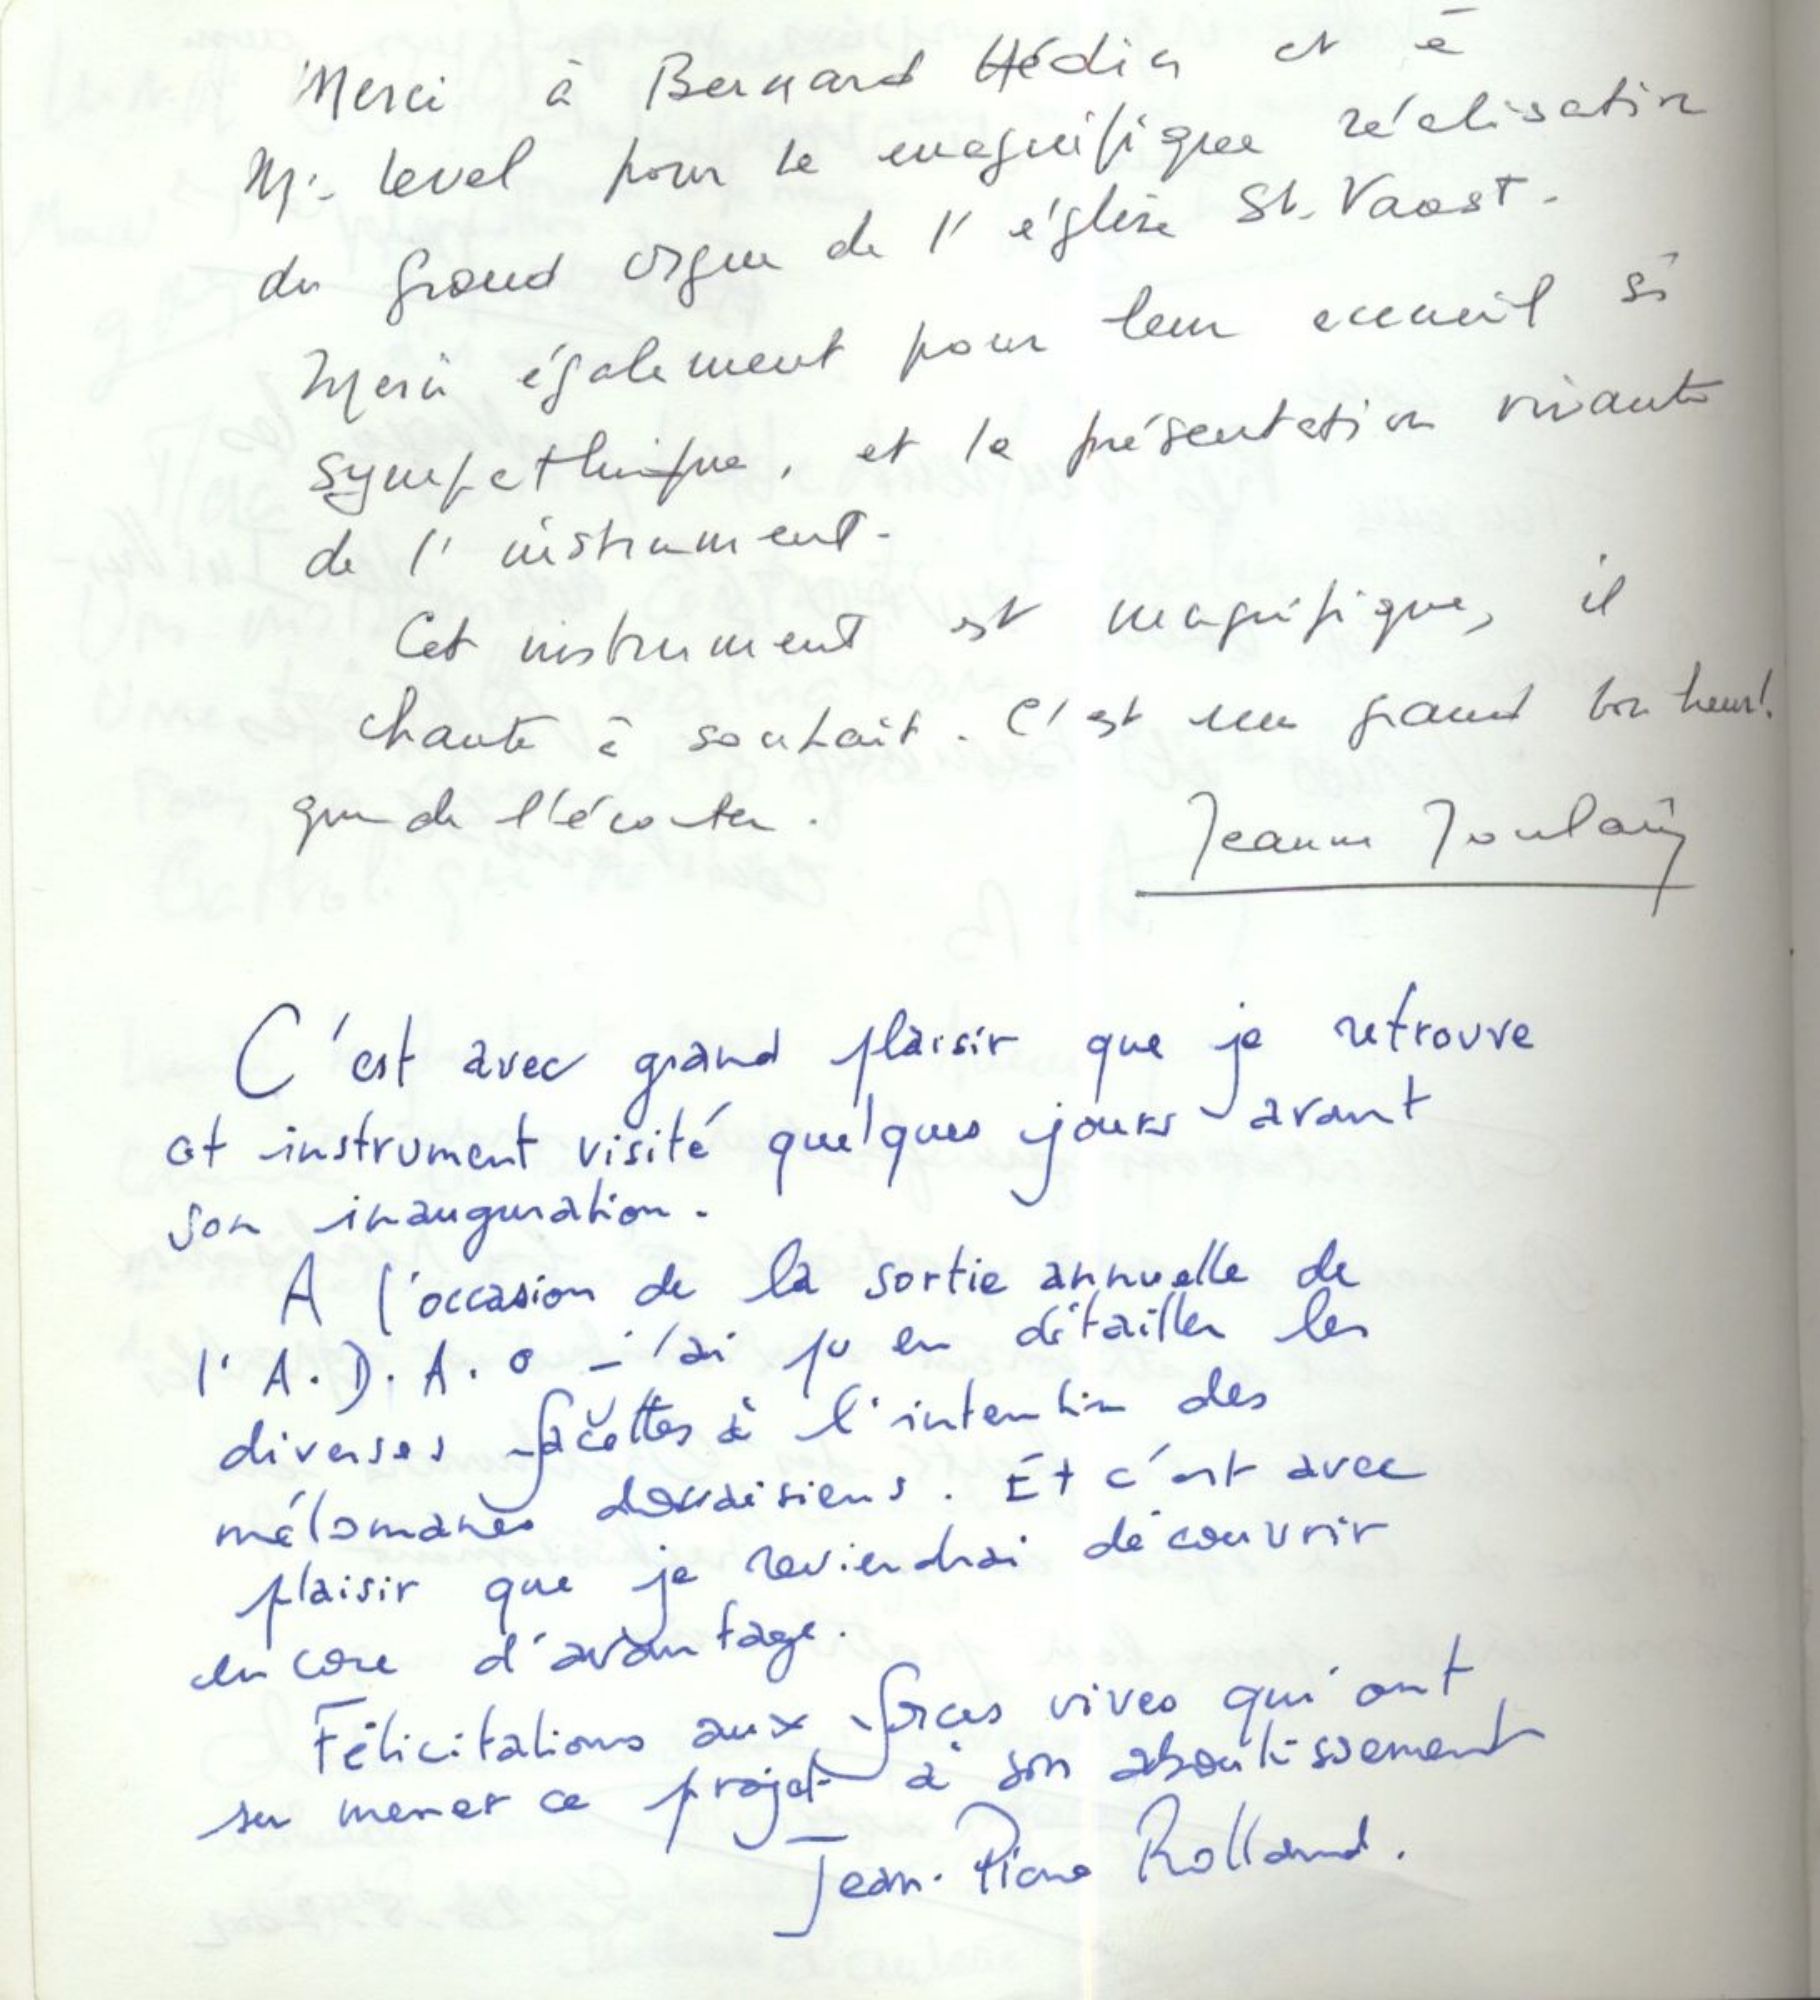 Merci à Bernard Hédin et à
Mr. Level pour la magnifique réalisation
du grand orgue de l'église St. Vaast.
Merci également pour leur accueil si
sympathique, et la présentation vivante
de l'instrument.
Cet instrument est magnifique, il
chante à souhait. C'est un grand bonheur!
que de l'écouter.
Jeanne Joulain
C'est avec grand plaisir que je retrouve
cet instrument visité quelques jours avant
son inauguration.
A l'occasion de la sortie annuelle de
l'A.D.A.O - j'ai pu en détailler les
diverses facettes à l'intention des
mélomanes douaisiens. Et c'est avec
plaisir que je reviendrai découvrir
encore d'avantage.
Félicitations aux forces vives qui ont
su mener ce projet à son aboutissement
Jean-Pierre Rolland.